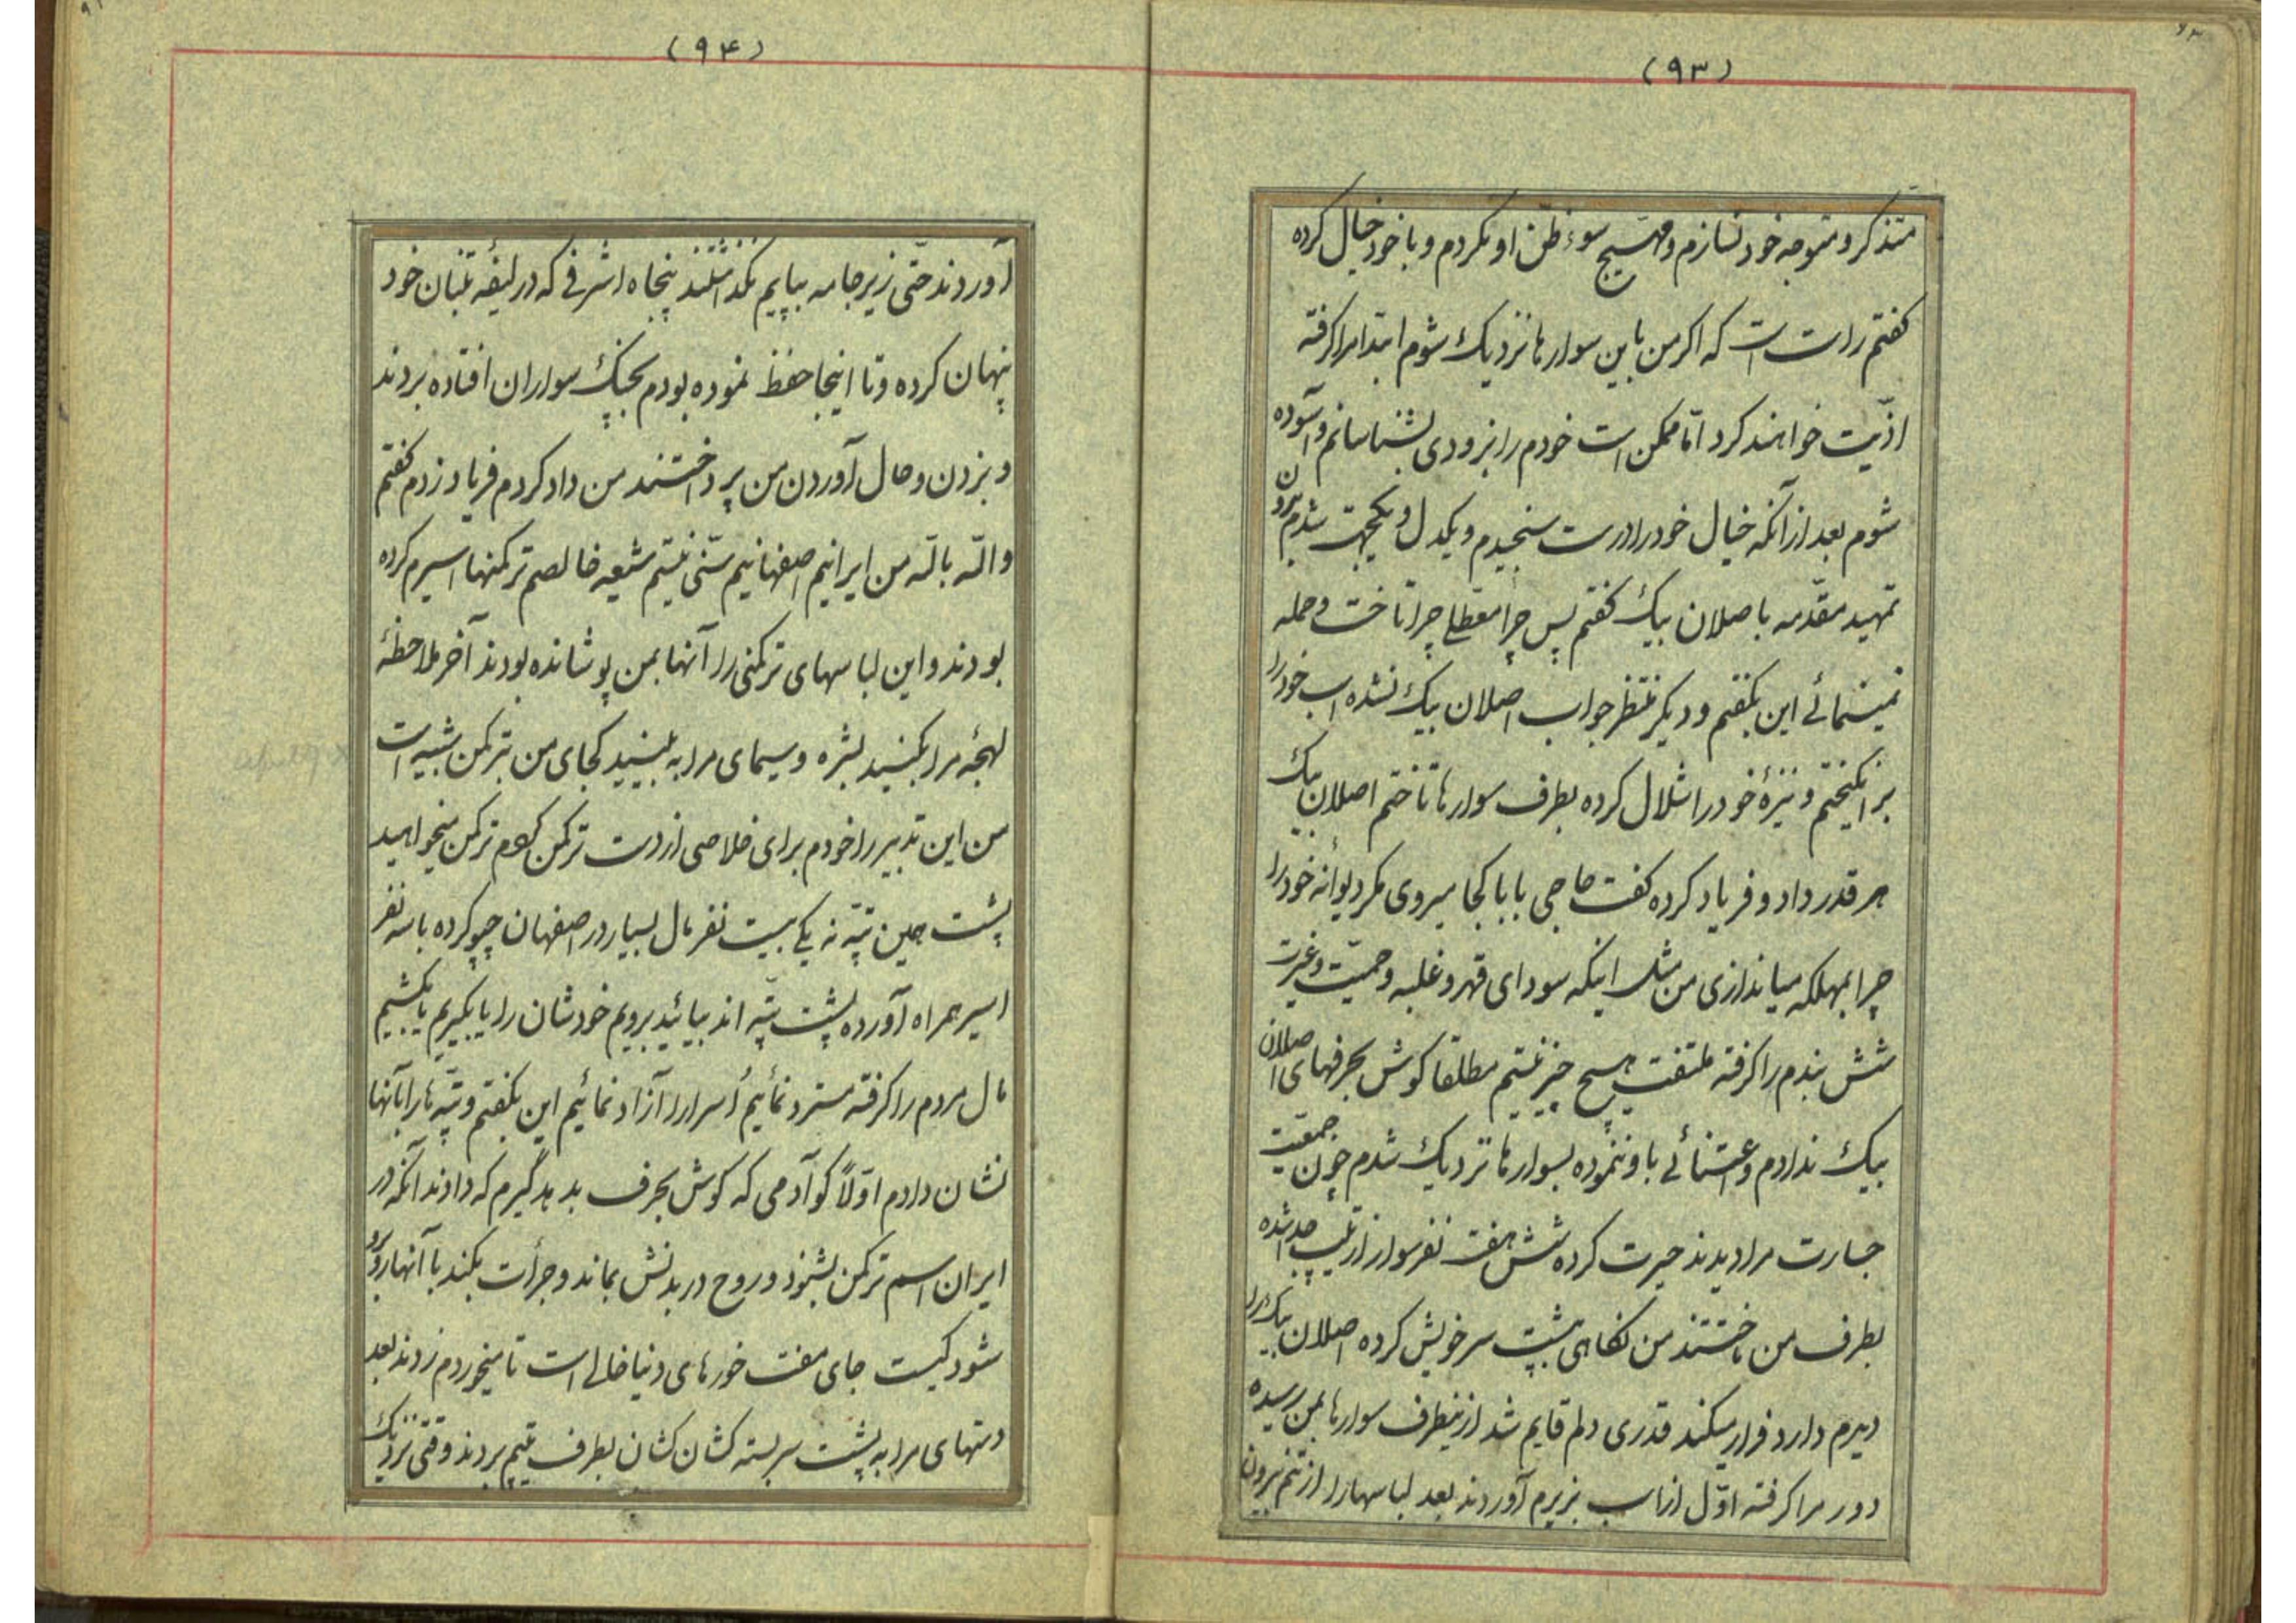 (۹۳)
متذکر و متوجه خود نسازم و مهیج سوء ظن او نکردم و با خود خیال کرده
کفتم راست است که اکر من باین سوارها نزدیک شوم ابتدا مرا کرفته
اذیّت خواهند کرد امّا ممکن است خودم را بزودی بشناسانم و آسوده
شوم بعد از آنکه خیال خود را درست سنجیدم و یکدل و یکجهت شدم بدون
تمهید مقدّمه باصلان بیک کفتم پس چرا معطلی چرا تاخت و حمله
نمینمائی این بکفتم و دیکر منتظر جواب اصلان بیک نشده اسب خود را
بر انکیختم و نیزهٔ خود را شلال کرده بطرف سوارها تاختم اصلان بیک
هر قدر داد و فریاد کرده کفت حاجی بابا کجا میروی مکر دیوانهٔ خود را
چرا بمهلکه میاندازی من مثل اینکه سودای قهر و غلبه و حمیّت و غیرت
شش بندم را کرفته ملتفت هیچ چیز نیستم مطلقا کوش بحرفهای اصلان
بیک ندادم و اعتنائی باو ننموده بسوارها نزدیک شدم چون جمعیت
جسارت مرا دیدند حیرت کرده شش هفت نفر سوار از تیپ جدا شده
بطرف من تاختند من نکاهی بپشت سر خویش کرده اصلان بیک را
دیدم دارد فرار میکند قدری دلم قایم شد ازینطرف سوارها بمن رسیده
دور مرا کرفته اوّل از اسب بزیرم آوردند بعد لباسهارا از تنم بیرون
(۹۴)
آوردند حتّی زیر جامه بپایم نکذاشتند پنجاه اشرفی که در لیفهٔ تنبان خود
پنهان کرده و تا اینجا حفظ نموده بودم بچنک سواران افتاده بردند
و بزدن و حال آوردن من پرداختند من داد کردم فریاد زدم کفتم
والله بالله من ایرانیم اصفهانیم سنّی نیستم شیعه خالصم ترکمنها اسیرم کرده
بودند و این لباسهای ترکمنی را آنها بمن پوشانده بودند آخر ملاحظهٔ
لهجهٔ مرا بکنید بشره و سیمای مرا به بینید کجای من بترکمن شبیه است
من این تدبیر را خودم برای خلاصی از دست ترکمن کردم ترکمن میخواهید
پشت همین تپّه نه یکی بیست نفر مال بسیار در اصفهان چپو کرده با سه نفر
اسیر همراه آورده پشت تپّه اند بیائید برویم خودشان را یا بکیریم یا بکشیم
مال مردم را کرفته مسترد نمائیم اُسرارا آزاد نمائیم این بکفتم و تپّه را بآنها
نشان دادم اوّلاً کو آدمی که کوش بحرف بدهد گیرم که دادند آنکه در
ایران اسم ترکمن بشنود و روح در بدنش بماند و جرأت بکند با آنها روبرو
شود کیست جای مفت خورهای دنیا خالی است تا میخوردم زدند بعد
دستهای مرا به پشت سر بسته کشان کشان بطرف تیپم بردند وقتی نزدیک